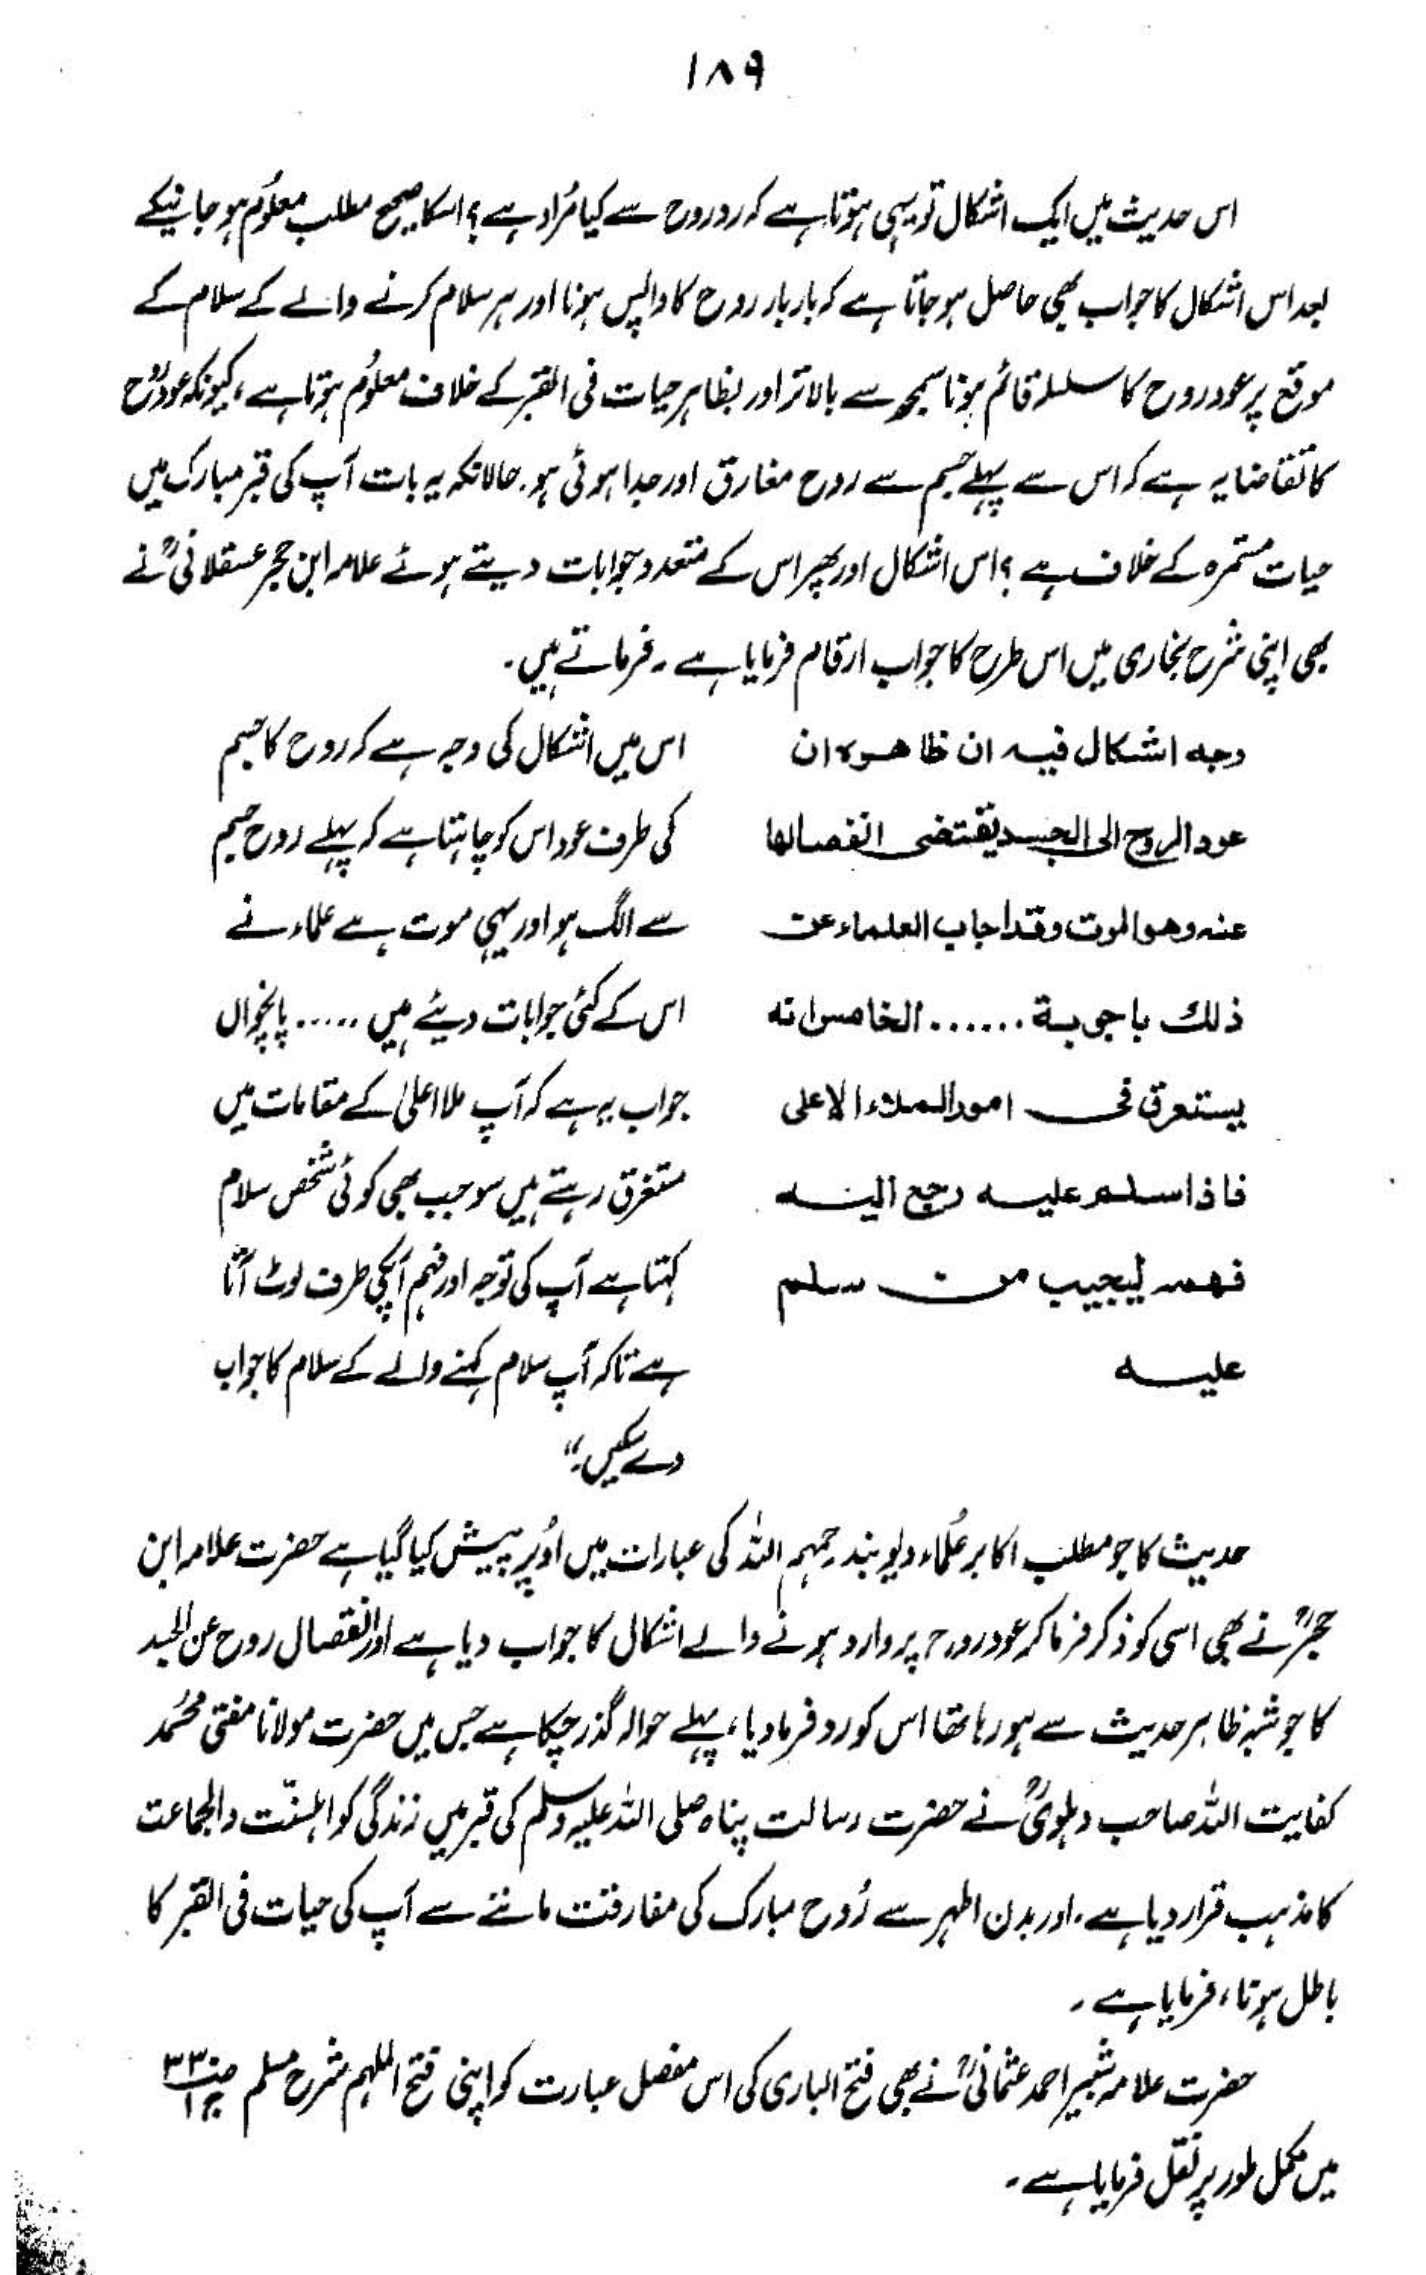 ۱۸۹
اس حدیث میں ایک اشکال تو یہی ہوتا ہے کہ ردروح سے کیا مُراد ہے؟ اسکا صحیح مطلب معلوُم ہو جانیکے
بعد اس اشکال کا جواب بھی حاصل ہو جاتا ہے کہ بار بار روح کا واپس ہونا اور ہر سلام کرنے والے کے سلام کے
موقع پر عود روح کا سلسلہ قائم ہونا سمجھ سے بالاتر اور بظاہر حیات فی القبر کے خلاف معلوُم ہوتا ہے، کیونکہ عود رُوح
کا تقاضا یہ ہے کہ اس سے پہلے جسم سے روح مفارق اور جدا ہوئی ہو۔ حالانکہ یہ بات آپ کی قبر مبارک میں
حیات مستمرہ کے خلاف ہے؟ اس اشکال اور پھر اس کے متعدد جوابات دیتے ہوئے علامہ ابن حجر عسقلانیؒ نے
بھی اپنی شرح بخاری میں اس طرح کا جواب ارقام فرمایا ہے۔ فرماتے ہیں۔
وجه اشكال فيه ان ظاهره ان
عود الروح الى الجسد يقتضى انفصالها
عنه وهو الموت وقد اجاب العلماء عن
ذلك باجوبة ...... الخامس انه
يستعرق فى امور الملاء الاعلى
فاذا سلم عليه رجع الينه
فهمه ليجيب من سلم
عليه
اس میں اشکال کی وجہ ہے کہ روح کا جسم
کی طرف عود اس کو چاہتا ہے کہ پہلے روح جسم
سے الگ ہو اور یہی موت ہے علماء نے
اس کے کئی جوابات دیئے ہیں ..... پانچواں
جواب یہ ہے کہ آپ ملا اعلیٰ کے مقامات میں
مستغرق رہتے ہیں سو جب بھی کوئی شخص سلام
کہتا ہے آپ کی توجہ اور فہم آپکی طرف لوٹ آتا
ہے تاکہ آپ سلام کہنے والے کے سلام کا جواب
دے سکیں۔“
حدیث کا جو مطلب اکابر عُلماء دیوبند رحمہم اللہ کی عبارات میں اوُپر پیش کیا گیا ہے حضرت علامہ ابن
حجرؒ نے بھی اسی کو ذکر فرما کر عود روح پر وارد ہونے والے اشکال کا جواب دیا ہے اور انفصال روح عن الجسد
کا جو شبہ ظاہر حدیث سے ہو رہا تھا اس کو رد فرما دیا، پہلے حوالہ گذر چکا ہے جس میں حضرت مولانا مفتی محُمد
کفایت اللہ صاحب دہلویؒ نے حضرت رسالت پناہ صلی اللہ علیہ وسلم کی قبر میں زندگی کو اہلسنّت والجماعت
کا مذہب قرار دیا ہے۔ اور بدن اطہر سے رُوح مبارک کی مفارقت ماننے سے آپ کی حیات فی القبر کا
باطل ہوتا، فرمایا ہے۔
حضرت علامہ شبیر احمد عثمانیؒ نے بھی فتح الباری کی اس مفصل عبارت کو اپنی فتح الملہم شرح مسلم ص۳۳۰ ج۱
میں مکمل طور پر نقل فرمایا ہے۔